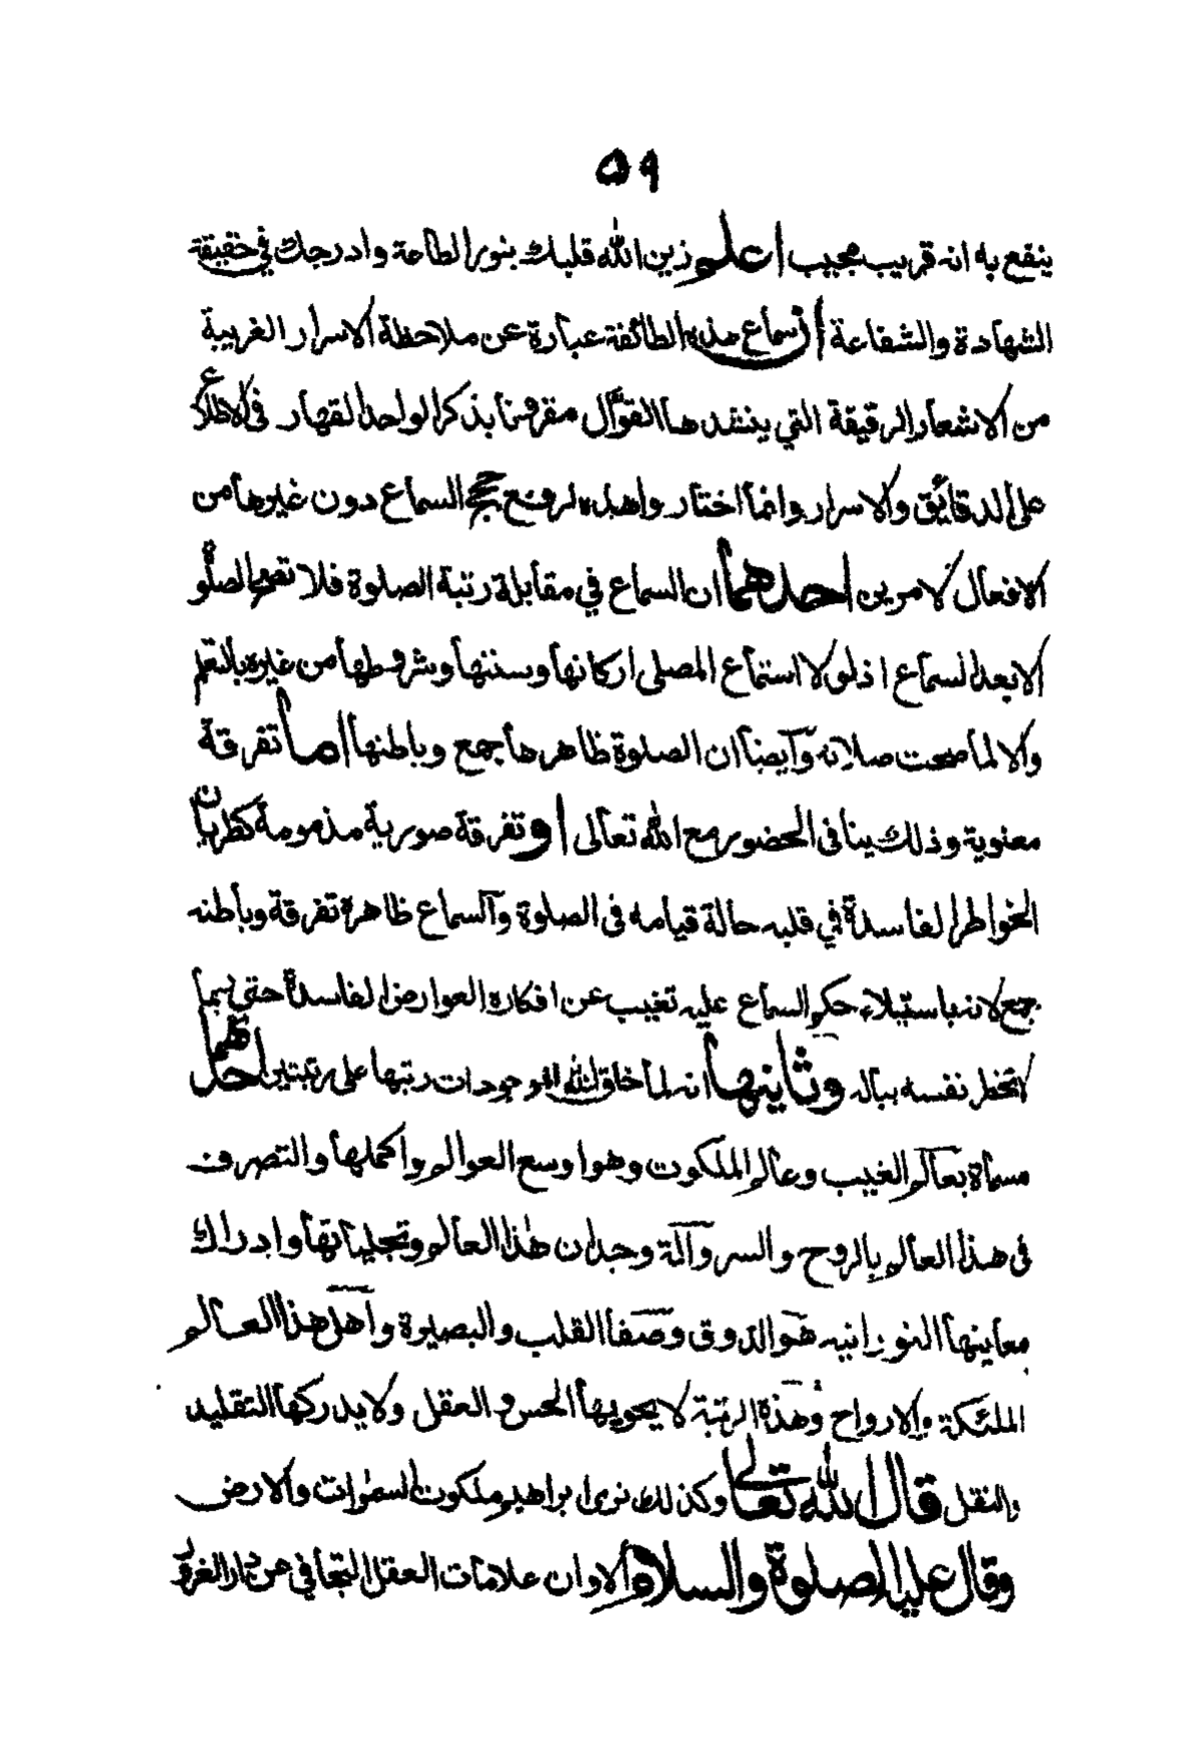 ٥٩
ينفع به انه قريب مجيب اعلم زين الله قلبك بنور الطاعة وادرجك في حقيقة
الشهادة والشفاعة ان سماع هذه الطائفة عبارة عن ملاحظة الاسرار الغريبة
من الاشعار الرقيقة التي ينشدها القوّال مقرونا بذكر الواحد القهار في الاطلاع
على الدقائق والاسرار وانما اختار واهبله لرفع حجج السماع دون غيرها من
الافعال لامرين احدهما ان السماع في مقابلة رتبة الصلوة فلا تصح الصلوة
الا بعد السماع اذ لولا استماع المصلى اركانها وسننها وشروطها من غيره بالتعلم
والا لما صحت صلاته وآيضا ان الصلوة ظاهرها جمع وباطنها اما تفرقة
معنوية وذلك ينافى الحضور مع الله تعالى او تفرقة صورية مذمومة كطريان
الخواطر الفاسدة في قلبه حالة قيامه فى الصلوة وآلسماع ظاهره تفرقة وباطنه
جمع لانه باستيلاء حكم السماع عليه تغيب عن افكاره العوارض الفاسدة حتى ربما
لا تخطر نفسه بباله وثانيهما انه لما خلق الله الموجودات رتبها على رتبتين احدهما
مسماة بعالم الغيب وعالم الملكوت وهو اوسع العوالم واكملها والتصرف
فى هذا العالم بالروح والسر وآلة وجدان هذا العالم وتجلياتها وادراك
معاينها النورانيه هو الذوق وصفا القلب والبصيرة وآهل هذا العالم
الملئكة والارواح وهذه الرتبة لا يحويها الحس والعقل ولا يدركها التقليد
والنقل قال الله تعالى وكذلك نرى ابراهيم ملكوت السموات والارض
وقال عليه الصلوة والسلام الا وان علامات العقل التجافي عن دار الغرور